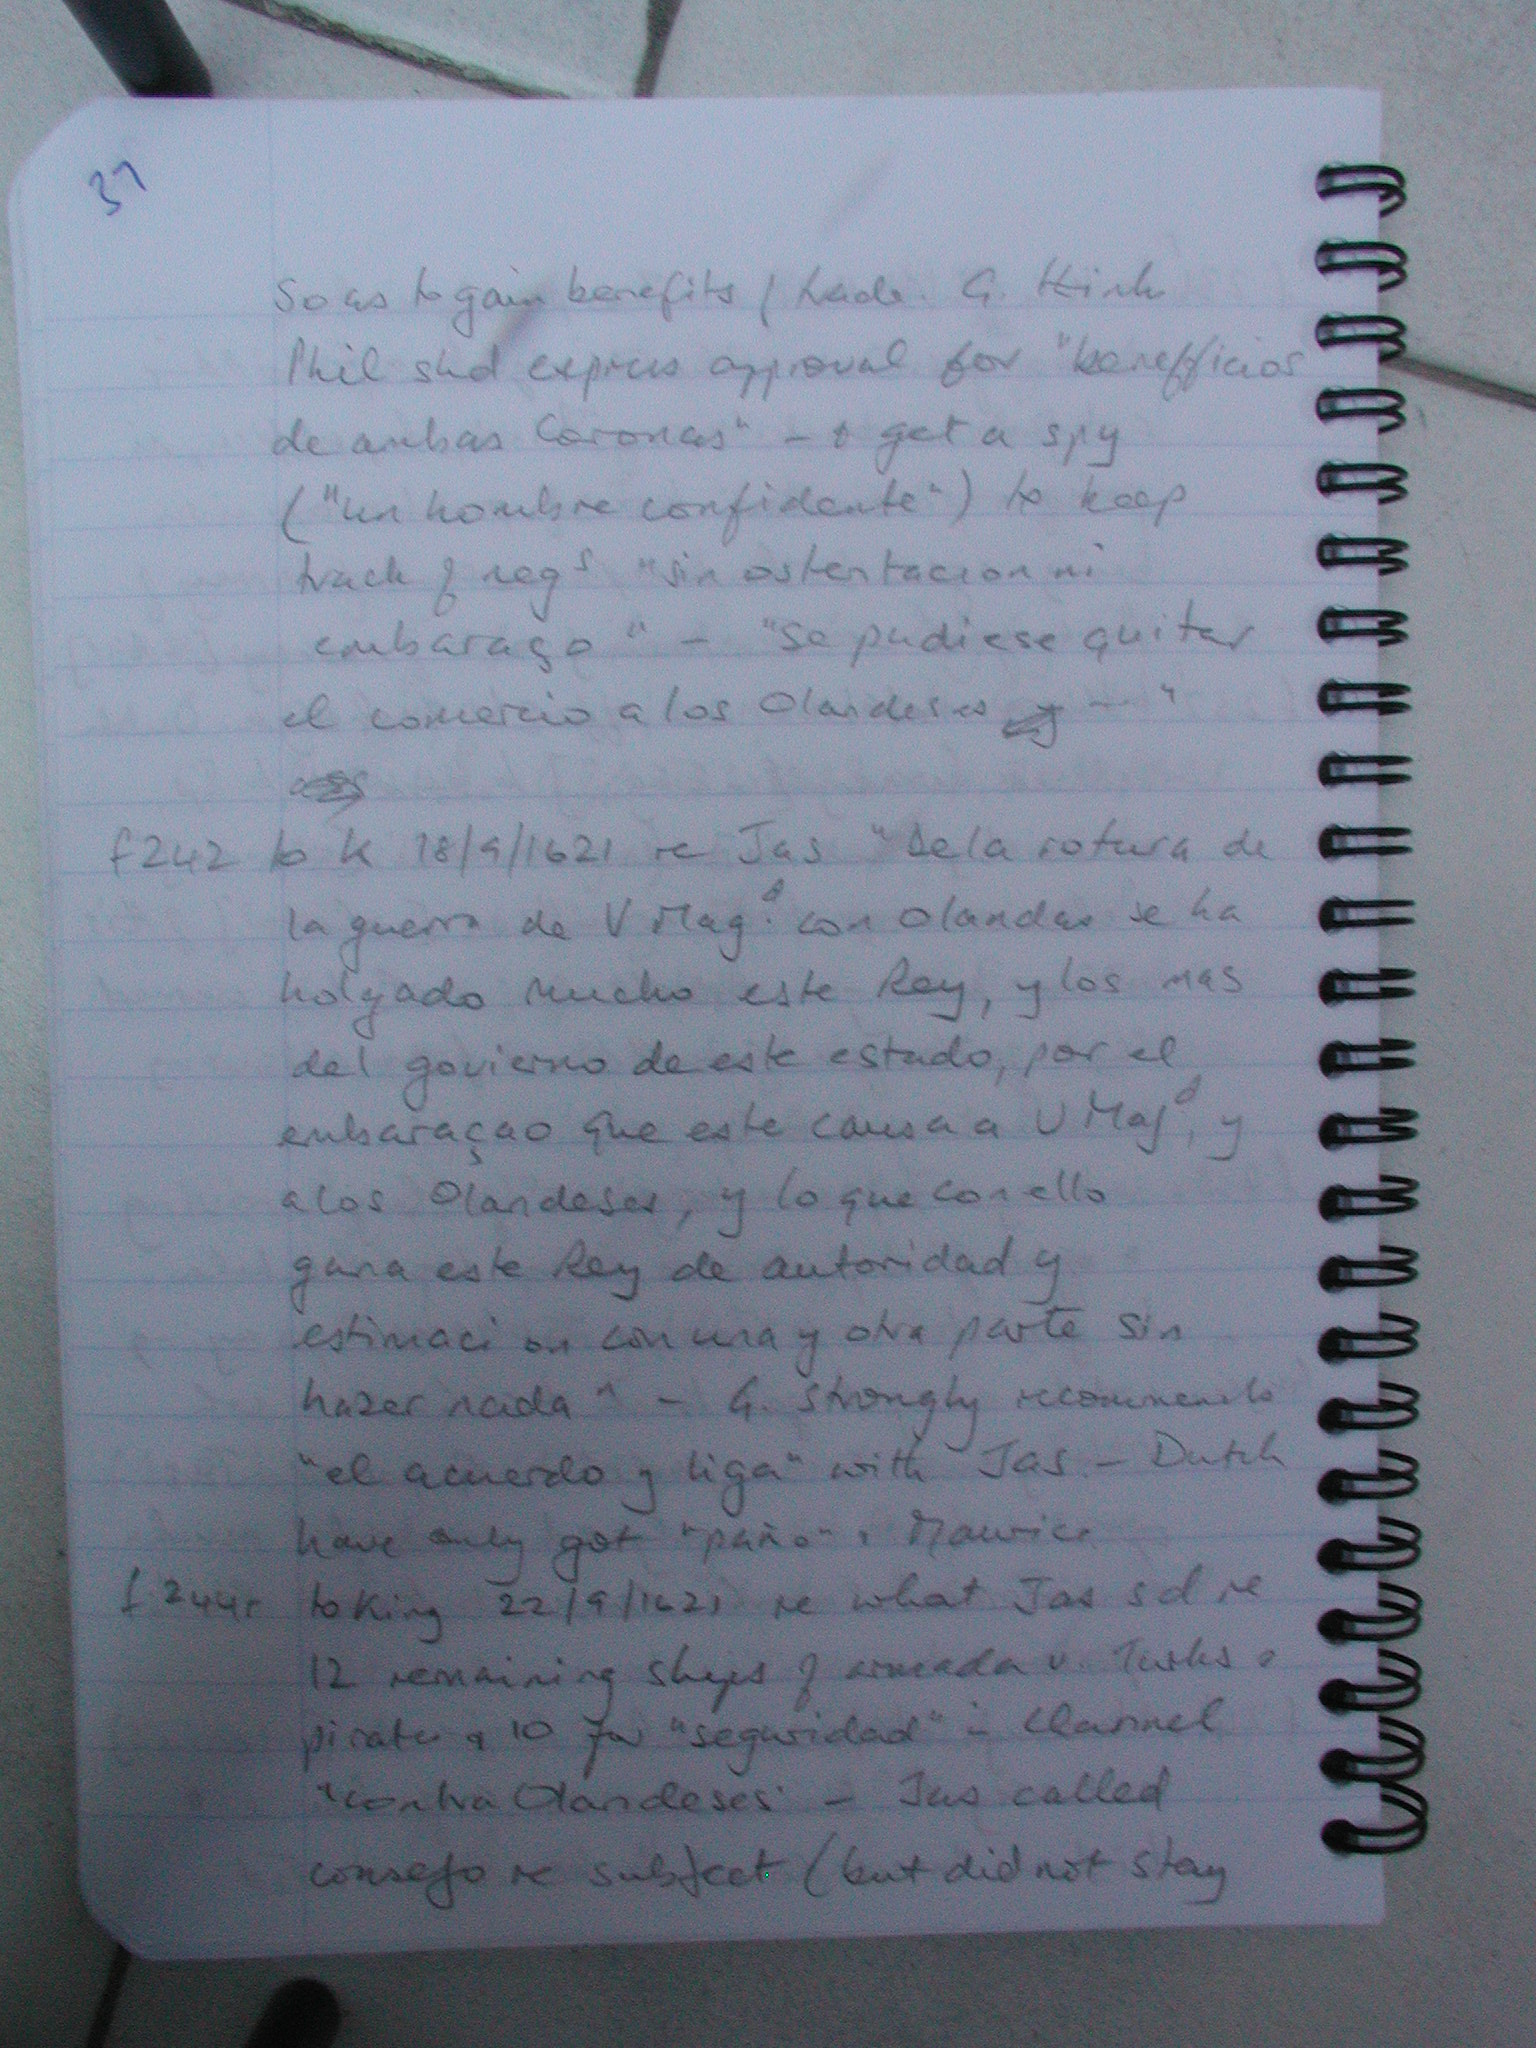 37
So as to gain benefits / trade. G. think
Phil shd express approval for "benefficios
de ambas Coronas" – & get a spy
("un hombre confidente") to keep
track of negs "sin ostentacion ni
embaraço" – "se pudiese quitar
el comercio a los Olandeses ... "
f242 to K 18/9/1621 re Jas "De la rotura de
la guerra de V Magd. con Olandas se ha
holgado mucho este Rey, y los mas
del govierno de este estado, por el
embaraçao que este causa a V Majd, y
a los Olandeses, y lo que con ello
gana este Rey de autoridad y
estimacion con una y otra parte sin
hazer nada" – G. strongly recommends
"el acuerdo y liga" with Jas – Dutch
have only got "paño" & Maurice
f244r to King 22/9/1621 re what Jas sd re
12 remaining ships of armada v. Turks &
pirates & 10 for "seguridad" – Channel
"contra Olandeses" – Jas called
consejo re subject (but did not stay